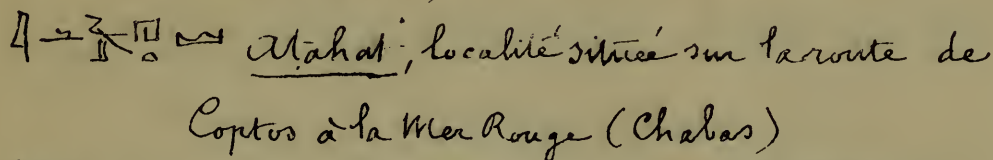 Atahat; localité située sur la route de
Coptos à la Mer Rouge (Chabas)